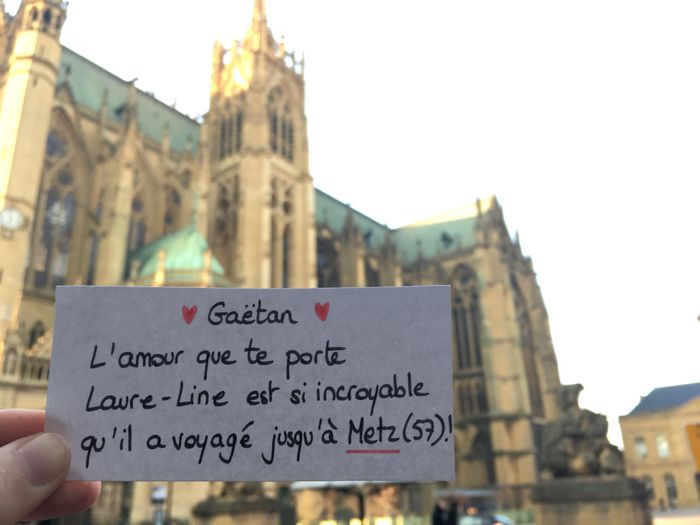 Gaëtan
L'amour que te porte
Laure-Line est si incroyable
qu'il a voyagé jusqu'à Metz (57)!